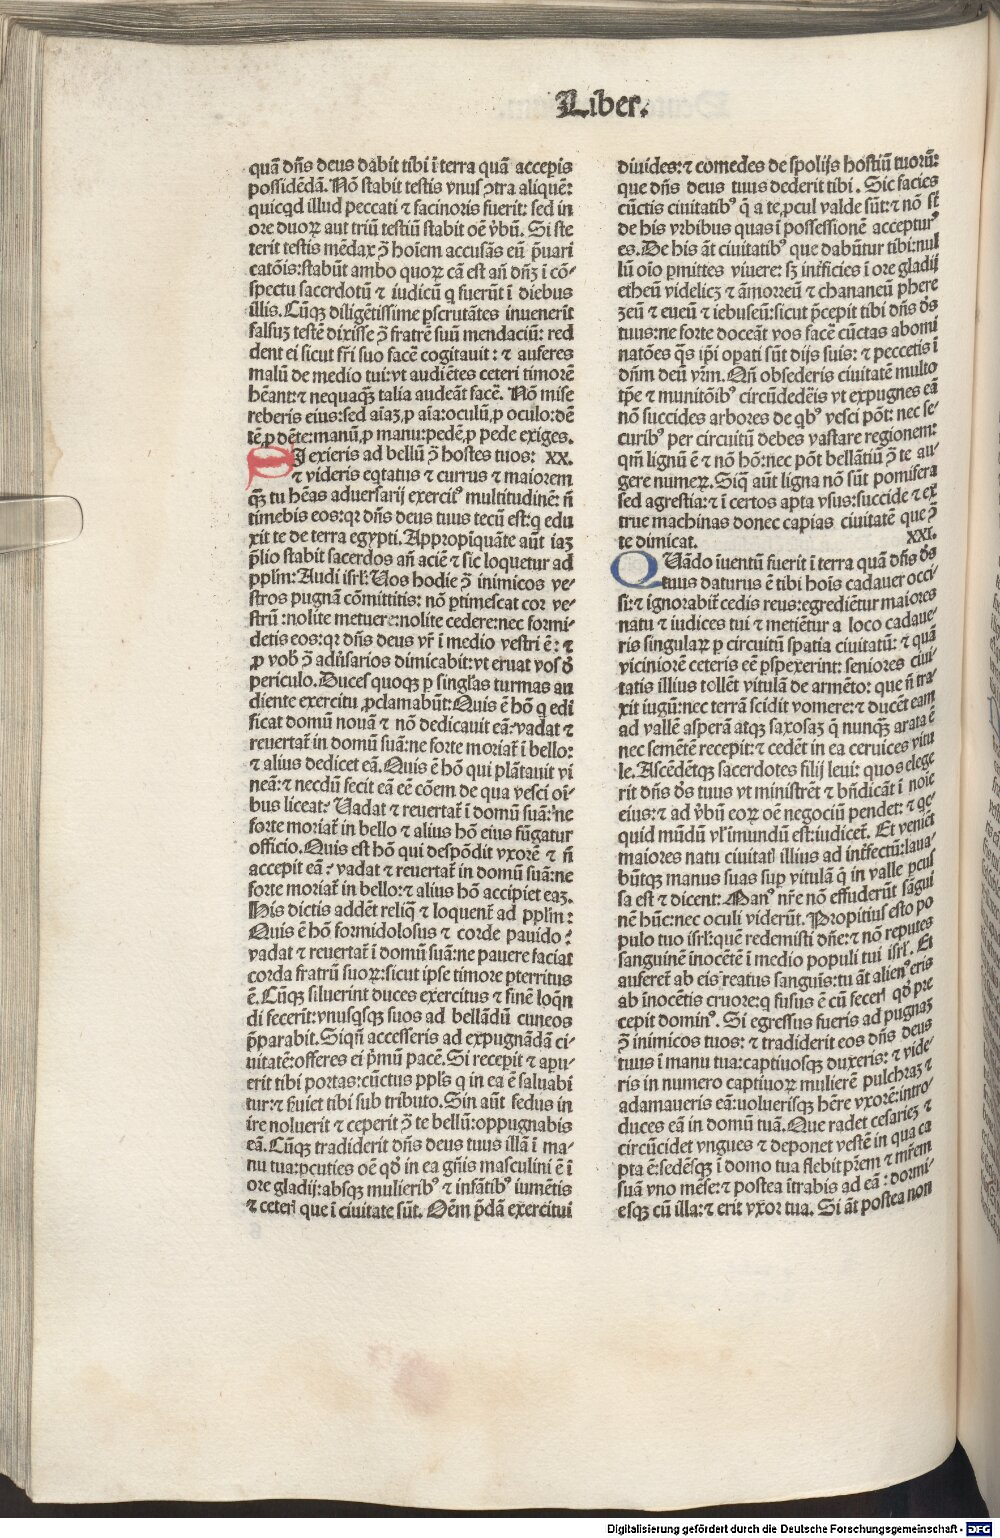 Liber.
quā dn̄s deus dabit tibi ī terra quā acceꝑis
possidēdā. Nō stabit testis vnus ꝯtra aliquē:
quicqd illud peccati ⁊ facinoris fuerit: sed in
ore duoꝝ aut triū testiū stabit oē ꝟbū. Si ste
terit testis mēdax ꝯ̄ hoīem accusās eū p̄uari
catōis: stabūt ambo quoꝝ cā est an̄ dn̄ꝫ ī cō-
spectu sacerdotū ⁊ iudicū q fuerūt ī diebus
illis. Cūqꝫ diligētissime ꝑscrutātes inuenerīt
falsuꝫ testē dixisse ꝯ̄ fratrē suū mendaciū: red
dent ei sicut fr̄i suo facē cogitauit: ⁊ auferes
malū de medio tui: vt audiētes ceteri timorē
hēant: ⁊ nequaqꝫ talia audeāt facē. Nō mise
reberis eius: sed aīaꝫ ꝓ aīa: oculū ꝓ oculo: dē
tē ꝓ dēte: manū ꝓ manu: pedē ꝓ pede exiges.
SI exieris ad bellū ꝯ̄ hostes tuos: XX.
⁊ videris eqtatus ⁊ currus ⁊ maiorem
qꝫ tu hēas aduersarij exercitꝰ multitudinē: n̄
timebis eos: qꝛ dn̄s deus tuus tecū est: q edu
xit te de terra egypti. Appropīquāte aūt iaꝫ
p̄lio stabit sacerdos an̄ aciē ⁊ sic loquetur ad
pplm̄: Audi isrl̄: Uos hodie ꝯ̄ inimicos ve-
stros pugnā cōmittitis: nō ꝑtimescat cor ve-
strū: nolite metuere: nolite cedere: nec formi-
detis eos: qꝛ dn̄s deus vr̄ ī medio vestri ē: ⁊
ꝓ vob̄ ꝯ̄ adūsarios dimicabit: vt eruat vos đ
periculo. Duces quoqꝫ ꝑ singl̄as turmas au
diente exercitu ꝓclamabūt: Quis ē hō q edi
ficat domū nouā ⁊ nō dedicauit eā: vadat ⁊
reuertat̄ in domū suā: ne forte moriat̄ ī bello:
⁊ alius dedicet eā. Quis ē hō qui plātauit vi
neā: ⁊ necdū fecit eā eē cōem de qua vesci oī-
bus liceat: Uadat ⁊ reuertat̄ ī domū suā: ne
forte moriat̄ in bello ⁊ alius hō eius fūgatur
officio. Quis est hō qui despōdit vxorē ⁊ n̄
accepit eā: vadat ⁊ reuertat̄ in domū suā: ne
forte moriat̄ in bello: ⁊ alius hō accipiet eaꝫ.
His dictis addēt reliq̄ ⁊ loquent̄ ad pplm̄:
Quis ē hō formidolosus ⁊ corde pauido:
vadat ⁊ reuertat̄ ī domū suā: ne pauere faciat
corda fratrū suoꝝ: sicut ipse timore ꝑterritus
ē. Cūqꝫ siluerint duces exercitus ⁊ finē loqn̄
di fecerīt: vnusqsqꝫ suos ad bellādū cuneos
p̄parabit. Siqn̄ accesseris ad expugnādā ci-
uitatē: offeres ei p̄mū pacē. Si receꝑit ⁊ aꝑu-
erit tibi portas: cūctus ppl̄s q in ea ē saluabi
tur: ⁊ ẜuiet tibi sub tributo. Sin aūt fedus in
ire noluerit ⁊ ceperit ꝯ̄ te bellū: oppugnabis
eā. Cūqꝫ tradiderit dn̄s deus tuus illā ī ma-
nu tua: ꝑcuties oē qđ in ea gn̄is masculini ē ī
ore gladij: absqꝫ mulieribꝰ ⁊ infātibꝰ iumētis
⁊ ceterꝭ que ī ciuitate sūt. Oēm p̄dā exercitui
diuides: ⁊ comedes de spolijs hostiū tuorū:
que dn̄s deus tuus dederit tibi. Sic facies
cūctis ciuitatibꝰ q̄ a te ꝓcul valde sūt: ⁊ nō st̄
de his vrbibus quas ī possessionē accepturꝰ
es. De his āt ciuitatibꝰ que dabūtur tibi: nul
lū oīo ꝑmittes viuere: sꝫ int̄ficies ī ore gladij
etheū videlicꝫ ⁊ āmorreū ⁊ chananeū phere
zeū ⁊ eueū ⁊ iebuseū: sicut p̄cepit tibi dn̄s đs
tuus: ne forte doceāt vos facē cūctas abomi
natōes q̄s ip̄i oꝑati sūt dijs suis: ⁊ peccetis ī
dn̄m deū vr̄m. Qn̄ obsederis ciuitatē multo
tp̄e ⁊ munitōibꝰ circūdedēis vt expugnes eā
nō succides arbores de qbꝰ vesci pōt: nec se-
curibꝰ per circuitū debes vastare regionem:
qm̄ lignū ē ⁊ nō hō: nec pōt bellātiū ꝯ̄ te au-
gere numeꝝ. Siq̄ aūt ligna nō sūt pomifera
sed agrestia: ⁊ ī certos apta vsus: succide ⁊ ex
true machinas donec capias ciuitatē que ꝯ̄
te dimicat. XXI.
QUādo īuentū fuerit ī terra quā dn̄s đs
tuus daturus ē tibi hoīs cadauer occi-
si: ⁊ ignorabit̄ cedis reus: egrediētur maiores
natu ⁊ iudices tui ⁊ metiētur a loco cadaue-
ris singularꝝ ꝑ circuitū spatia ciuitatū: ⁊ quā
viciniorē ceteris eē ꝑspexerint: seniores ciui-
tatis illius tollēt vitulā de armēto: que n̄ tra-
xit iugū: nec terrā scidit vomere: ⁊ ducēt eam
ad vallē asperā atqꝫ saxosaꝫ q̄ nunqꝫ arata ē
nec semētē recepit: ⁊ cedēt in ea ceruices vitu
le. Ascēdētqꝫ sacerdotes filij leui: quos elege
rit dn̄s đs tuus vt ministrēt ⁊ bn̄dicāt ī noīe
eius: ⁊ ad ꝟbū eoꝝ oē negociū pendet: ⁊ qc-
quid mūdū vl̄ īmundū est: iudicet̄. Et veniēt
maiores natu ciuitatꝭ illius ad int̄fectū: laua-
būtqꝫ manus suas suꝑ vitulā q̄ in valle ꝑcus
sa est ⁊ dicent: Manꝰ nr̄e nō effuderūt sāgui
nē hūc: nec oculi viderūt. Propitius esto po
pulo tuo isrl̄: quē redemisti dn̄e: ⁊ nō reputes
sanguinē inocētē ī medio populi tui isrl̄. Et
auferet̄ ab eis reatus sanguīs: tu āt alienꝰ eris
ab inocētis cruore: q fusus ē cū fecerꝭ qđ pre
cepit dominꝰ. Si egressus fueris ad pugnaꝫ
ꝯ̄ inimicos tuos: ⁊ tradiderit eos dn̄s deus
tuus ī manu tua: captiuosqꝫ duxeris: ⁊ vide-
ris in numero captiuoꝝ mulierē pulchraꝫ ⁊
adamaueris eā: volueris qꝫ hēre vxorē: intro-
duces eā in domū tuā. Que radet cesariēꝫ ⁊
circūcidet vngues ⁊ deponet vestē in qua ca
pta ē: sedēsqꝫ ī domo tua flebit pr̄em ⁊ mr̄em
suā vno mēse: ⁊ postea ītrabis ad eā: dormi-
esqꝫ cū illa: ⁊ erit vxor tua. Si āt postea non
Digitalisierung gefördert durch die Deutsche Forschungsgemeinschaft - DFG